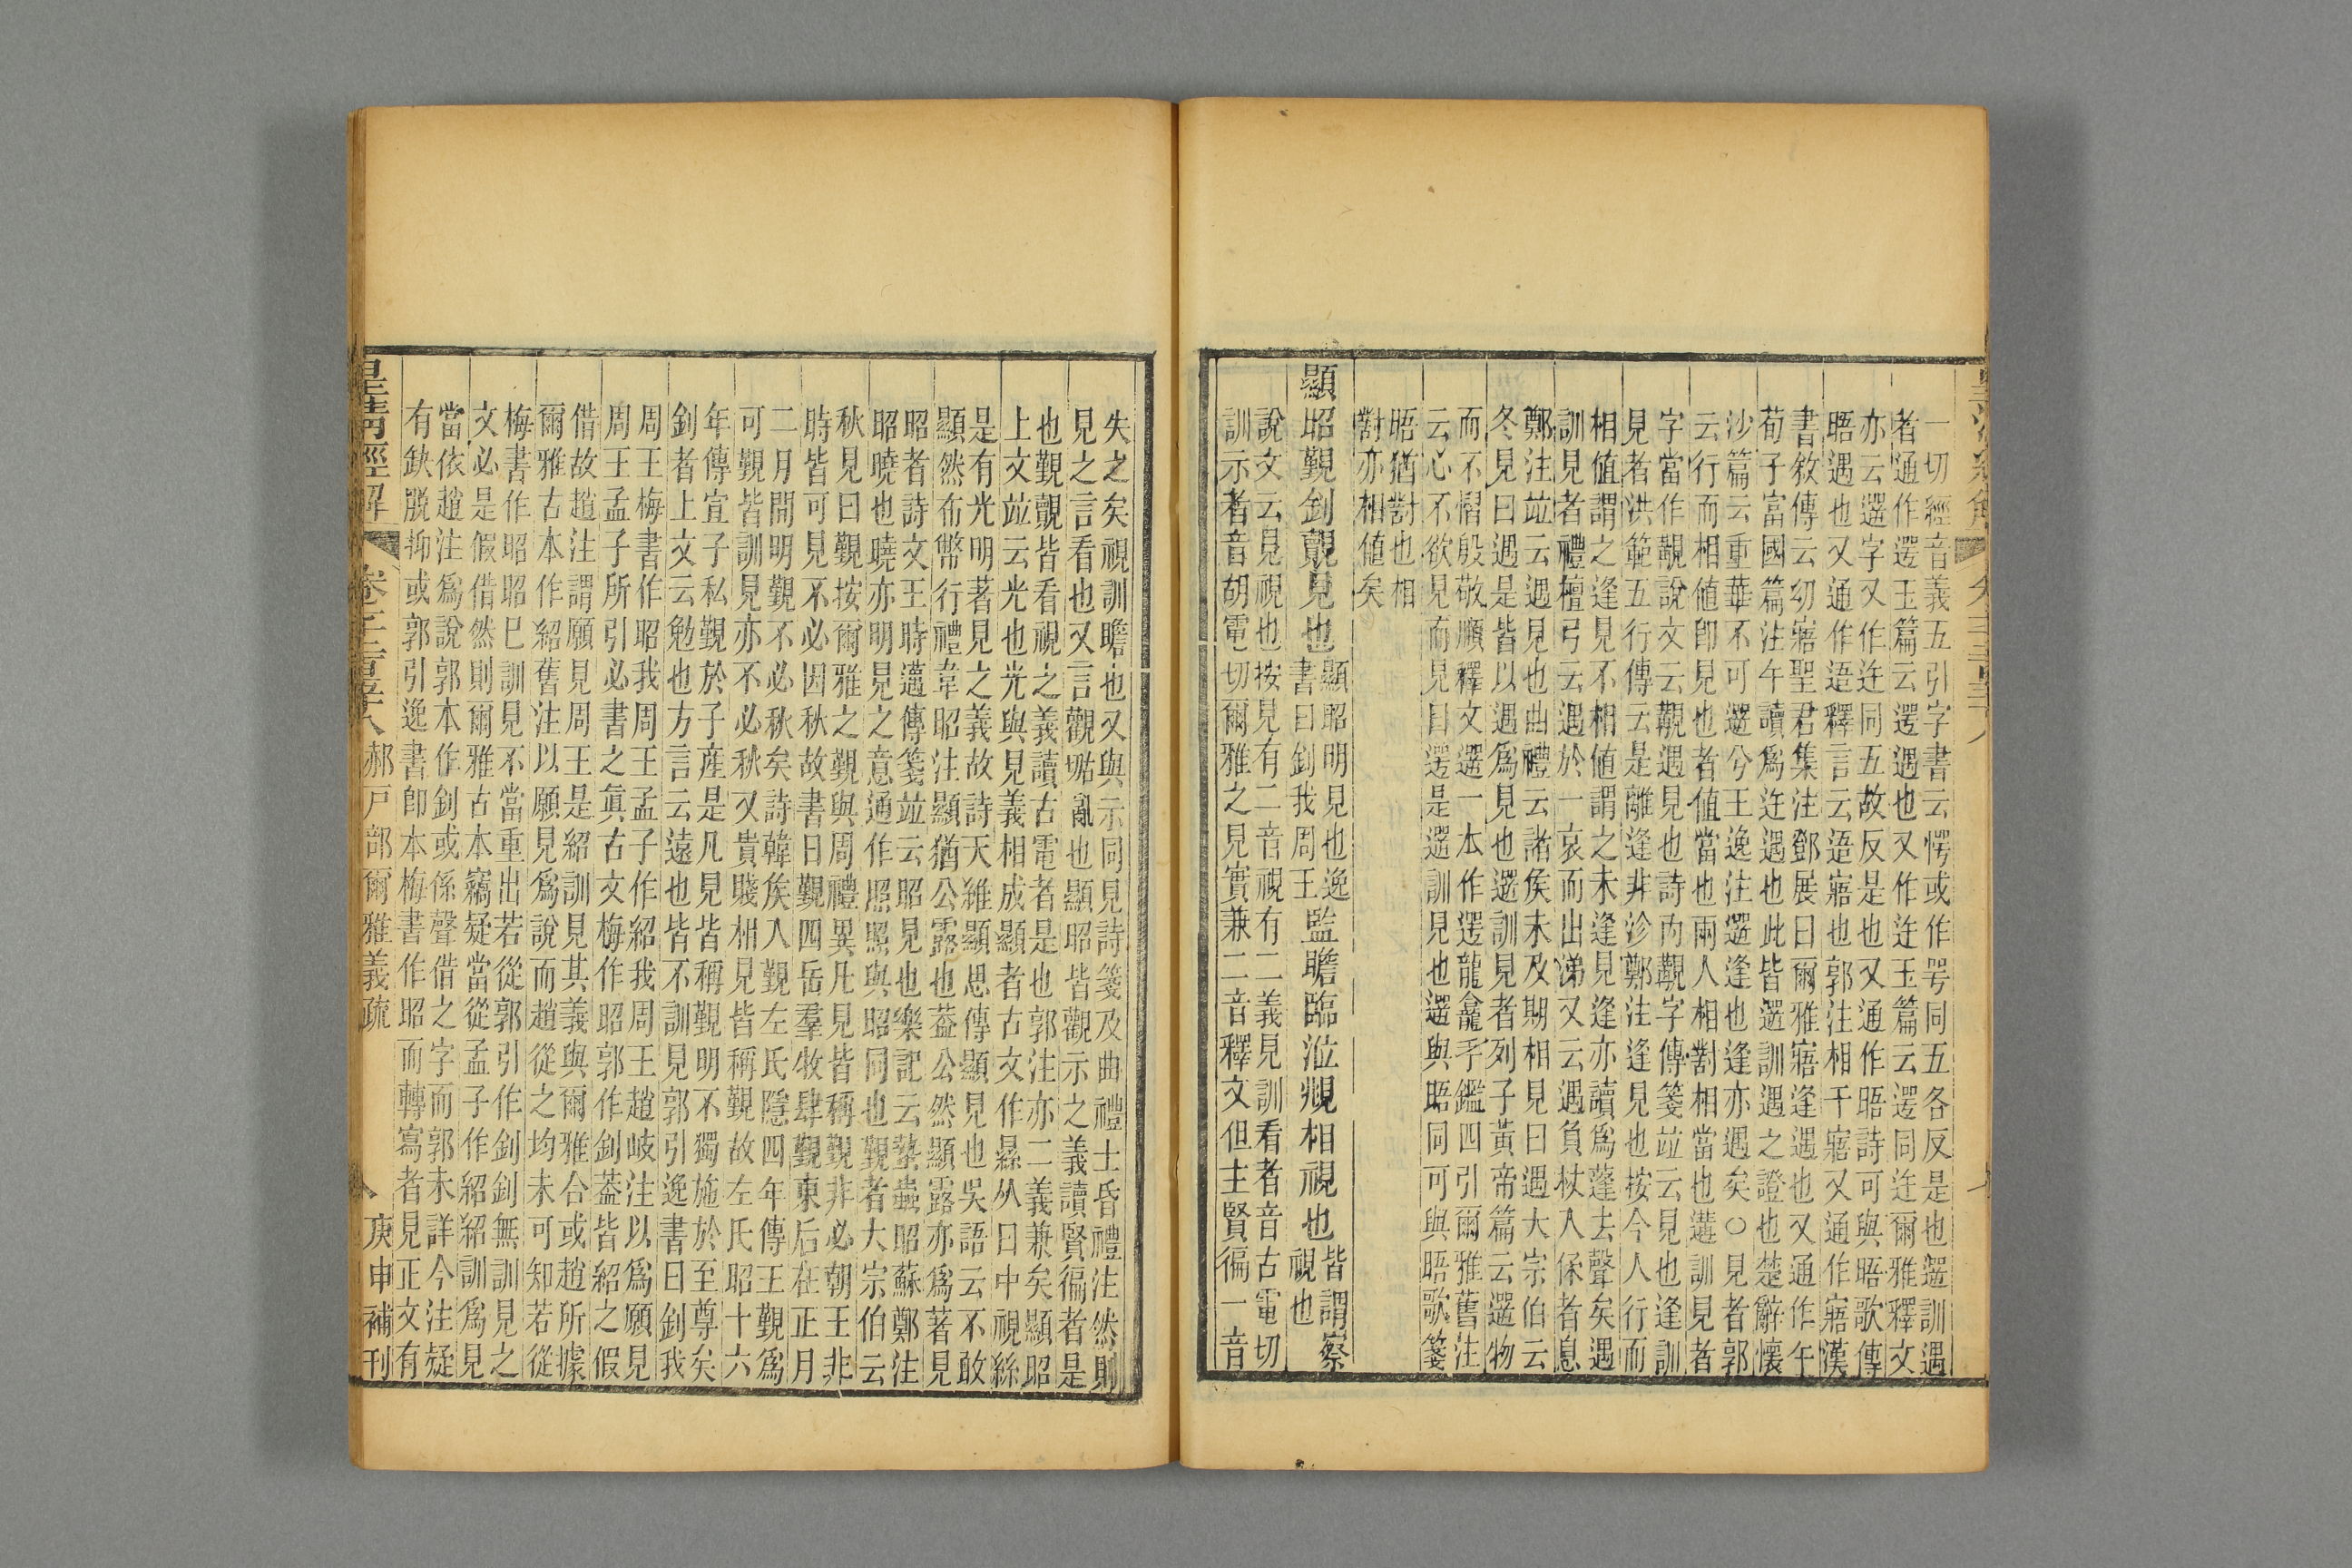 一切經音義五引字書云愕或作咢同五各反是也遻訓遇
者通作遻玉篇云遻遇也又作迕玉篇云遻同迕爾雅釋文
亦云遻字又作迕同五故反是也又通作晤詩可與晤歌傳
晤遇也又通作逜釋言云逜寤也郭注相干寤又通作寤漢
書敘傳云幼寤聖君集注鄧展曰爾雅寤逢遇也又通作午
荀子富國篇注午讀爲迕遇也此皆遻訓遇之證也楚辭懷
沙篇云重華不可遻兮王逸注遻逢也逢亦遇矣○見者郭
云行而相値卽見也者値當也兩人相對相當也遘訓見者
字當作覯說文云覯遇見也詩內覯字傳箋竝云見也逢訓
見者洪範五行傳云是離逢非沴鄭注逢見也按今人行而
相値謂之逢見不相値謂之未逢見逢亦讀爲蓬去聲矣遇
訓見者禮檀弓云遇於一哀而出涕又云遇負杖入保者息
鄭注竝云遇見也曲禮云諸矦未及期相見曰遇大宗伯云
冬見曰遇是皆以遇爲見也遻訓見者列子黃帝篇云遻物
而不慴殷敬順釋文遻一本作遻龍龕手鑑四引爾雅舊注
云心不欲見而見曰遻是遻訓見也遻與晤同可與晤歌箋
晤猶對也相
對亦相値矣
顯昭覲釗覿見也
顯昭明見也逸
書曰釗我周王
監瞻臨涖覜相視也
皆謂察
視也
說文云見視也按見有二音視有二義見訓看者音古電切
訓示者音胡電切爾雅之見實兼二音釋文但主賢徧一音
失之矣視訓瞻也又與示同見詩箋及曲禮士昏禮注然則
見之言看也又言觀䀩亂也顯昭皆觀示之義讀賢徧者是
也覲覿皆看視之義讀古電者是也郭注亦二義兼矣顯昭
上文竝云光也光與見義相成顯者古文作㬎从日中視絲
是有光明著見之義故詩天維顯思傳顯見也吳語云不敢
顯然布幣行禮韋昭注顯猶公露也葢公然顯露亦爲著見
昭者詩文王時邁傳箋竝云昭見也樂記云蟄蟲昭蘇鄭注
昭曉也曉亦明見之意通作照照與昭同也覲者大宗伯云
秋見曰覲按爾雅之覲與周禮異凡見皆稱覲非必朝王非
時皆可見不必因秋故書曰覲四岳羣牧肆覲東后在正月
二月閒明覲不必秋矣詩韓矦入覲左氏隱四年傳王覲爲
可覲皆訓見亦不必秋又貴賤相見皆稱覲故左氏昭十六
年傳宣子私覲於子產是凡見皆稱覲明不獨施於至尊矣
釗者上文云勉也方言云遠也皆不訓見郭引逸書曰釗我
周王梅書作昭我周王孟子作紹我周王趙岐注以爲願見
周王孟子所引必書之眞古文梅作昭郭作釗葢皆紹之假
借故趙注謂願見周王是紹訓見其義與爾雅合或趙所據
爾雅古本作紹舊注以願見爲說而趙從之均未可知若從
梅書作昭昭已訓見不當重出若從郭引作釗釗無訓見之
文必是假借然則爾雅古本竊疑當從孟子作紹紹訓爲見
當依趙注爲說郭本作釗或係聲借之字而郭未詳今注疑
有缺脫抑或郭引逸書卽本梅書作昭而轉寫者見正文有
皇清經解 卷千二百五十八 郝戶部爾雅義疏 八 庚申補刊